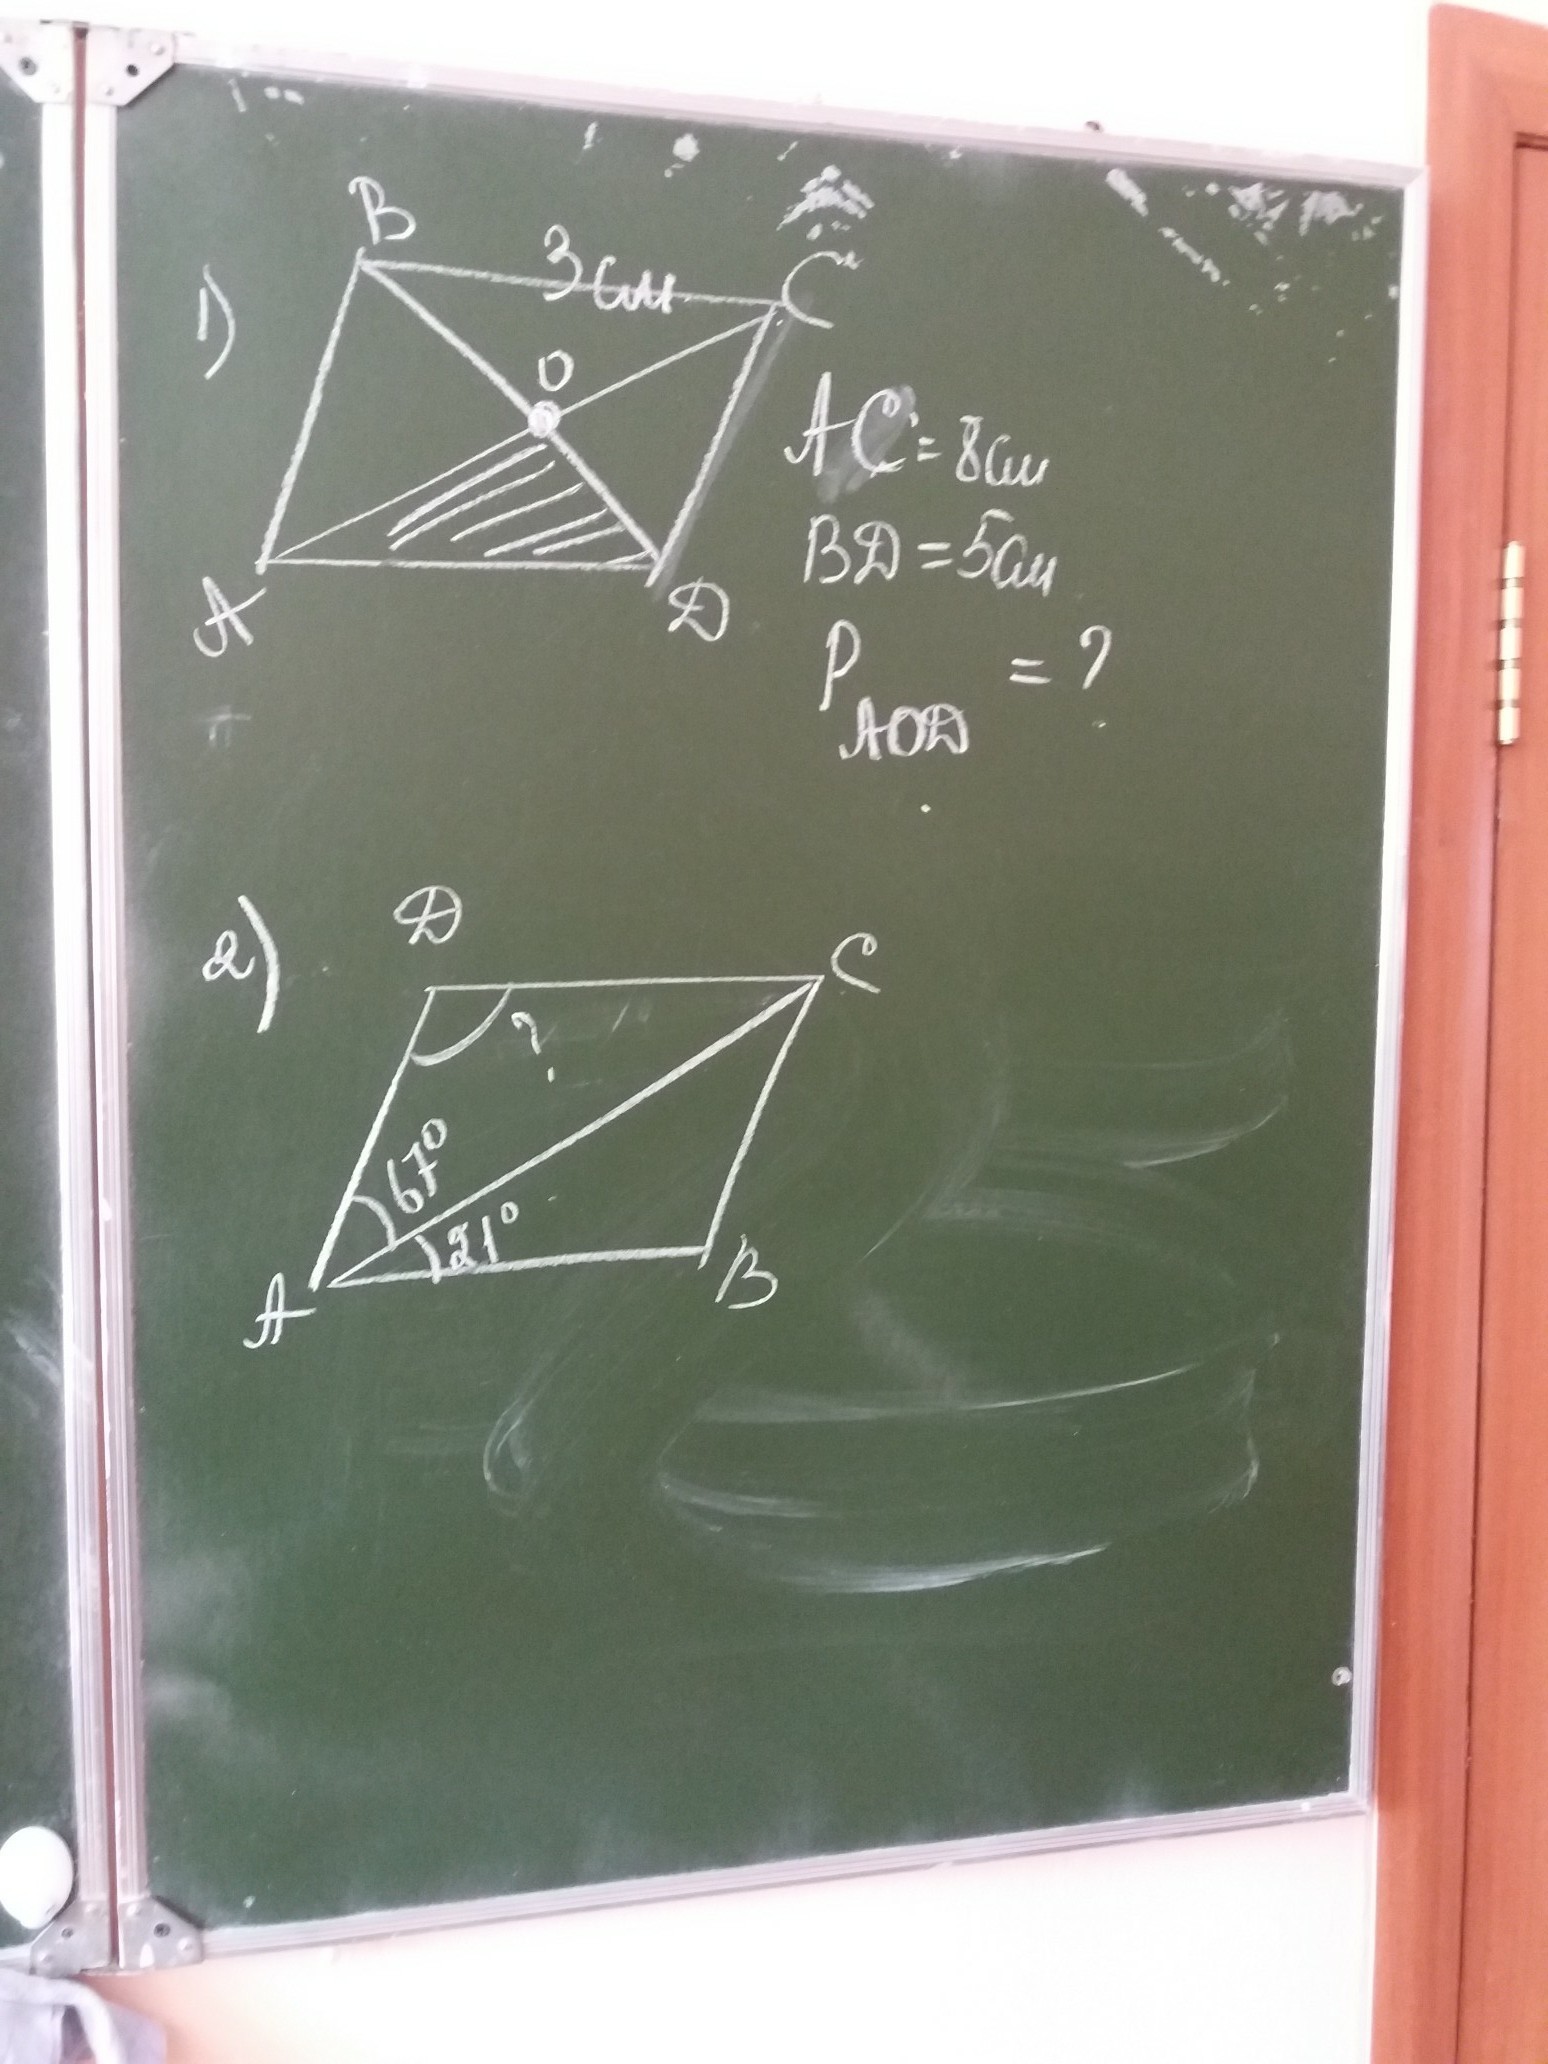 1)
B
3 см
C
O
A
D
AC = 8 см
BD = 5 см
P AOD = ?
2)
D
C
?
67°
21°
A
B